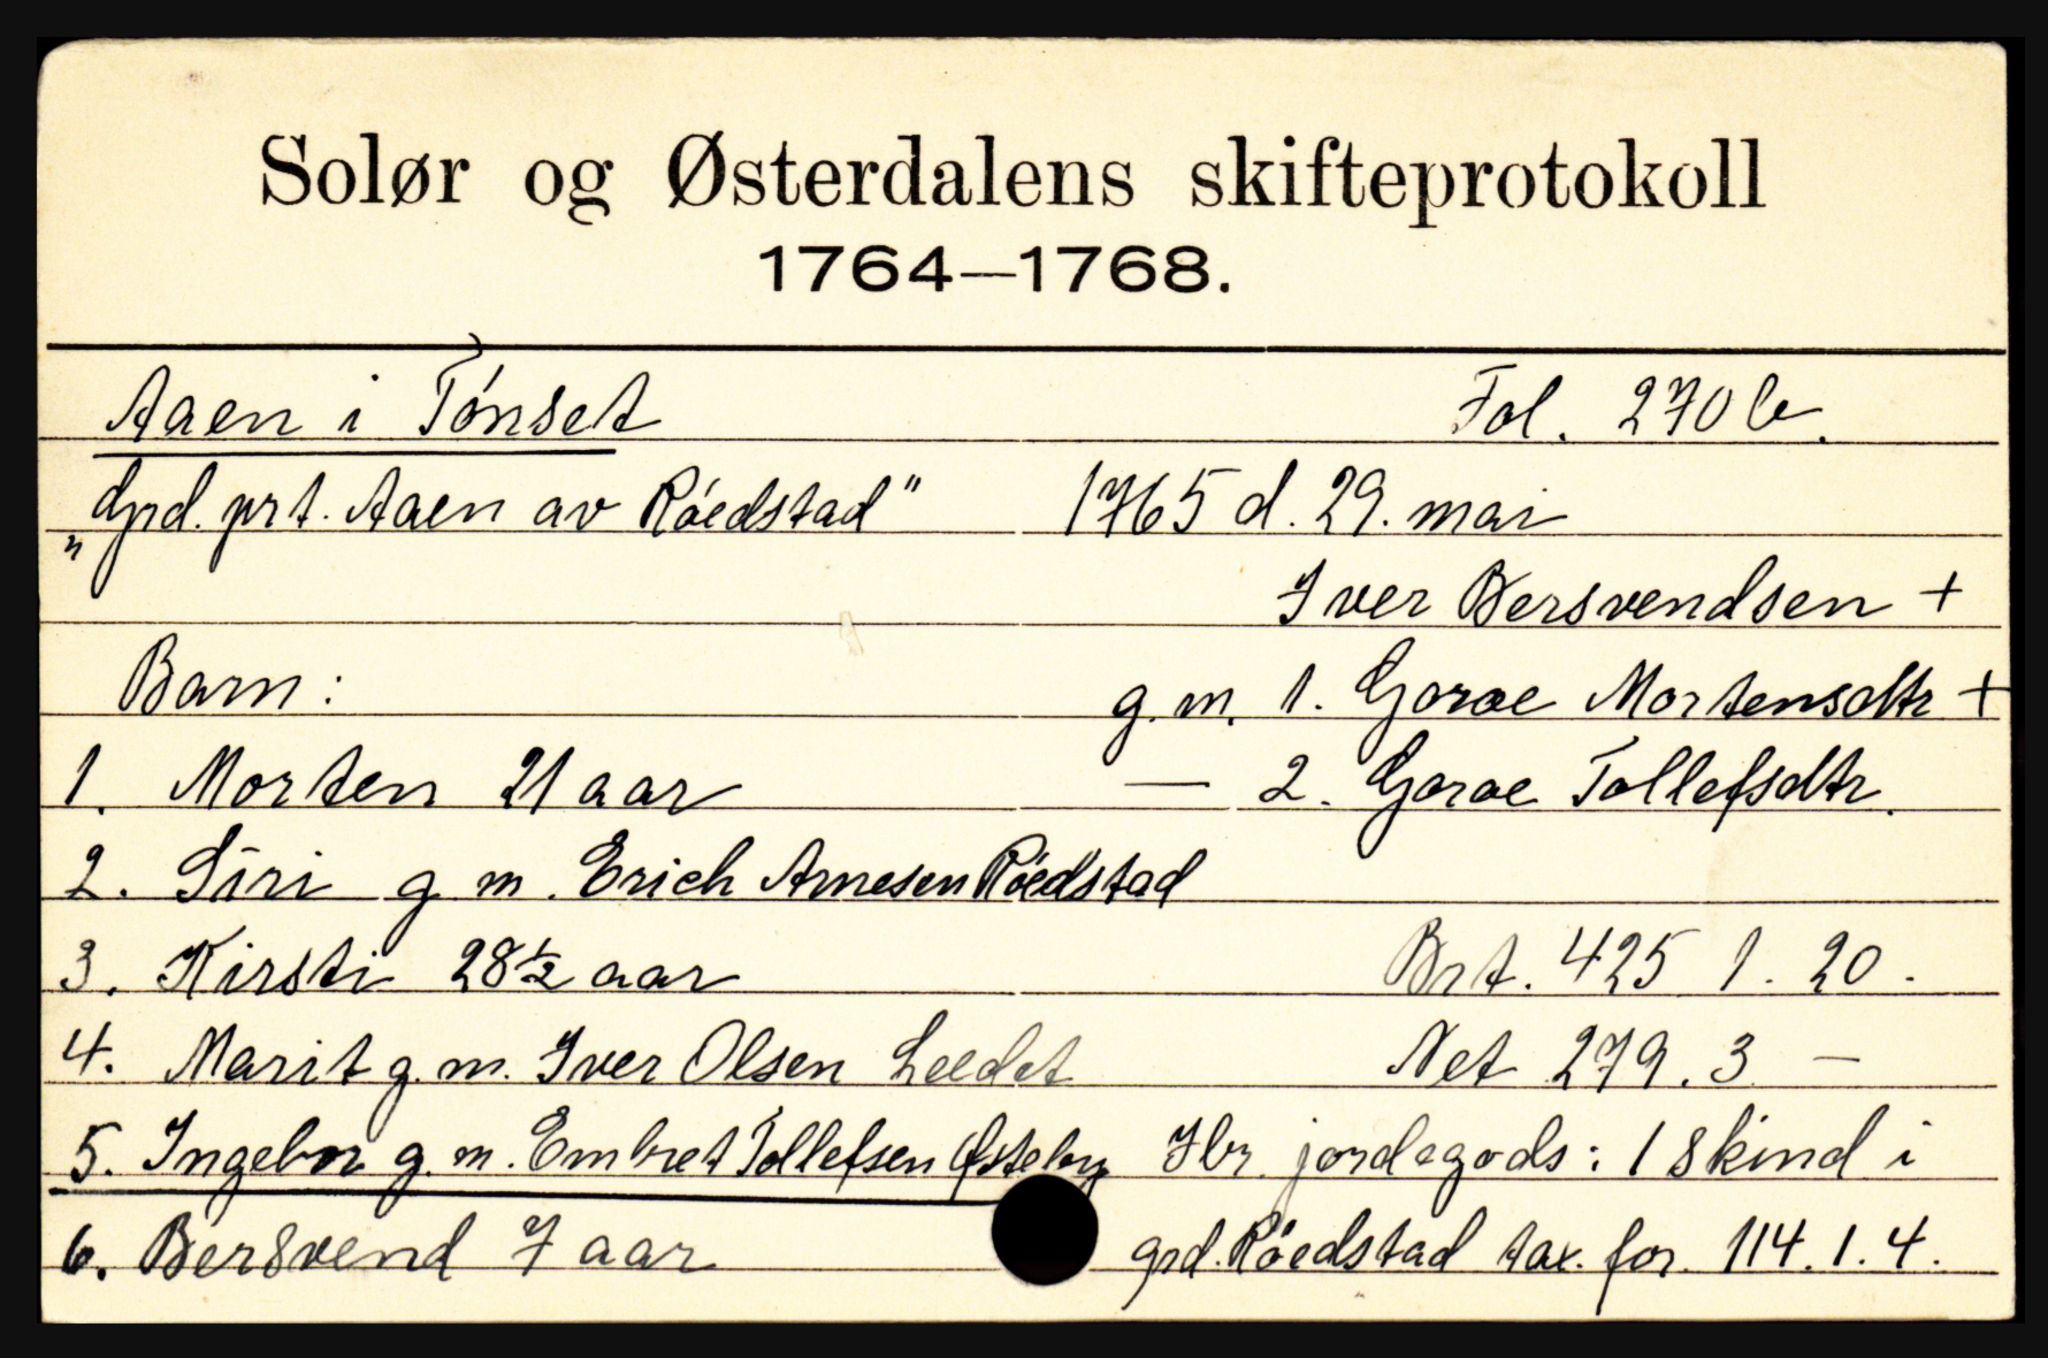 Solør og Østerdalens skifteprotokoll
1764—1768.
Aaen i Tónset Fol. 270 b.
"Grd. prt. Aaen av Róedstad" 1765 d. 29. mai
Iver Bersvendsen +
Barn: g. m. 1. Goroe Mortensdtr +
1. Morten 21 aar — 2. Goroe Tollefsdtr.
2. Siri g m. Erich Arnesen Róedstad
3. Kirsti 28 ½ aar Brt. 425 1. 20.
4. Marit g. m. Iver Olsen Leedet Net 279. 3 —
5. Ingebor g. m. Embret Tollefsen Østeby Ibr. jordegods: 1 skind i
6. Bersvend 7 aar grd. Róedstad tax. for. 114. 1. 4.